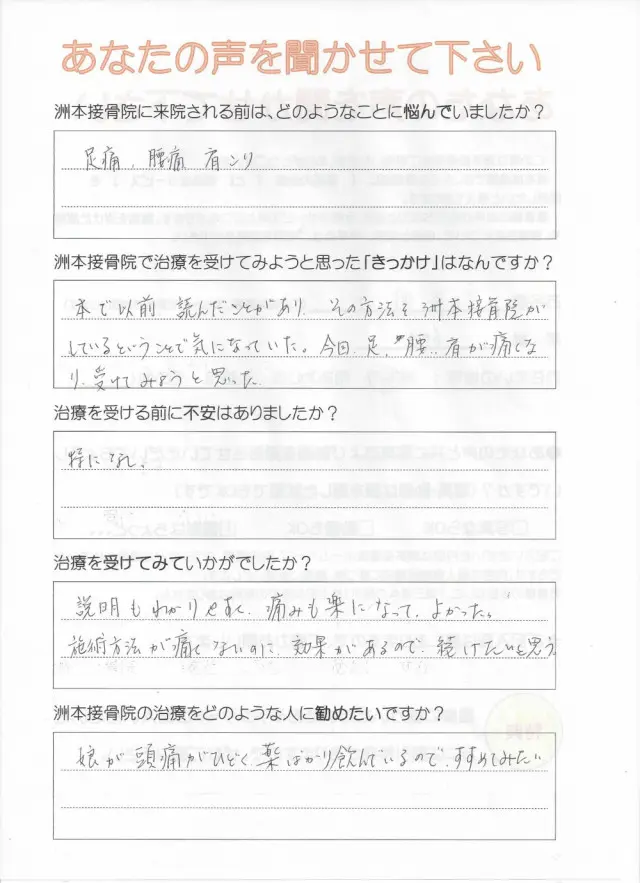 あなたの声を聞かせて下さい
洲本接骨院に来院される前は、どのようなことに悩んでいましたか？
足痛、腰痛 肩こり
洲本接骨院で治療を受けてみようと思った「きっかけ」はなんですか？
本で以前 読んだことがあり、その方法を洲本接骨院が
しているということで気になっていた。今回、足、腰、肩が痛くな
り、受けてみようと思った。
治療を受ける前に不安はありましたか？
特になし、
治療を受けてみていかがでしたか？
説明もわかりやすく、痛みも楽になって、よかった。
施術方法が痛くないのに、効果があるので、続けたいと思う
洲本接骨院の治療をどのような人に勧めたいですか？
娘が頭痛がひどく、薬ばかり飲んでいるので、すすめてみたい